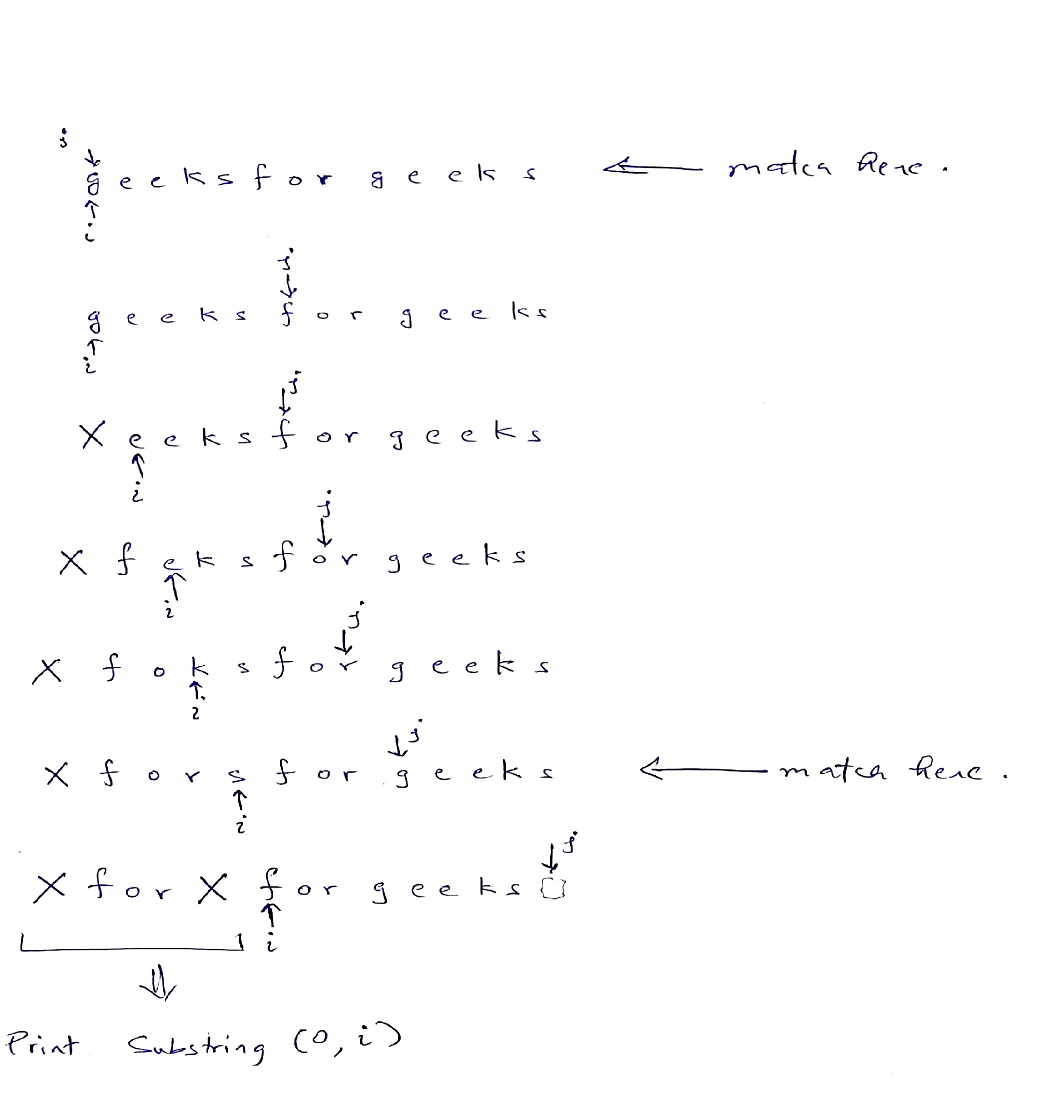 j
g e e k s f o r g e e k s ← match here.
i
j
g e e k s f o r g e e k s
i
j
X e e k s f o r g e e k s
i
j
X f e k s f o r g e e k s
i
j
X f o k s f o r g e e k s
i
j
X f o r s f o r g e e k s ← match here.
i
j
X f o r X f o r g e e k s
i
Print Substring (0, i)